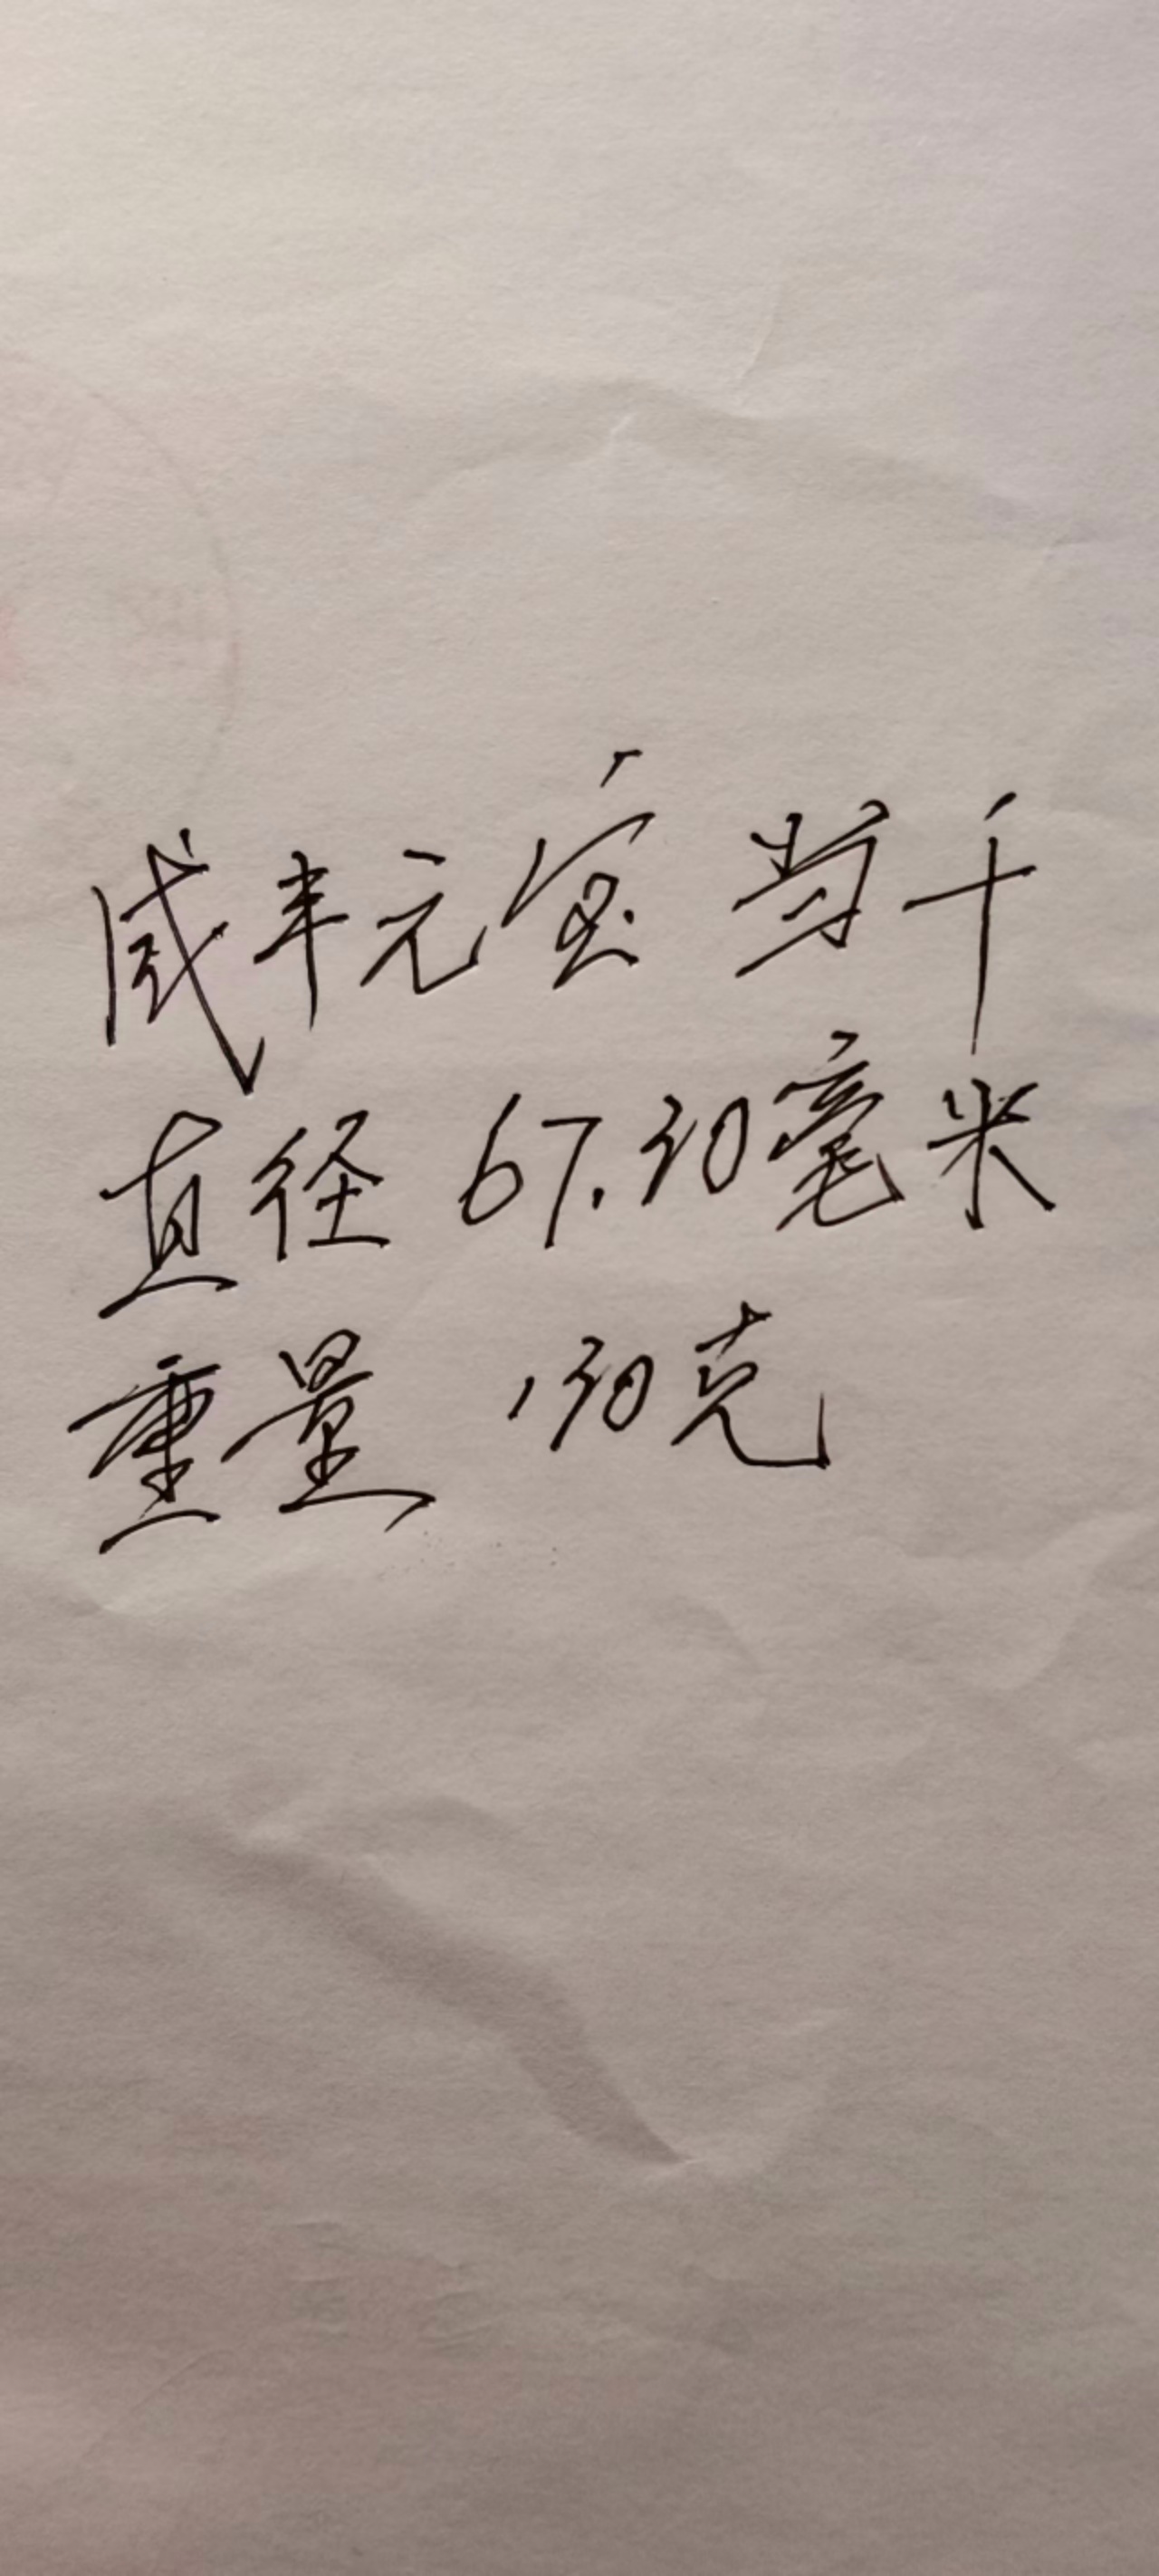 咸丰元宝 当千
直径 67.50毫米
重量 150克